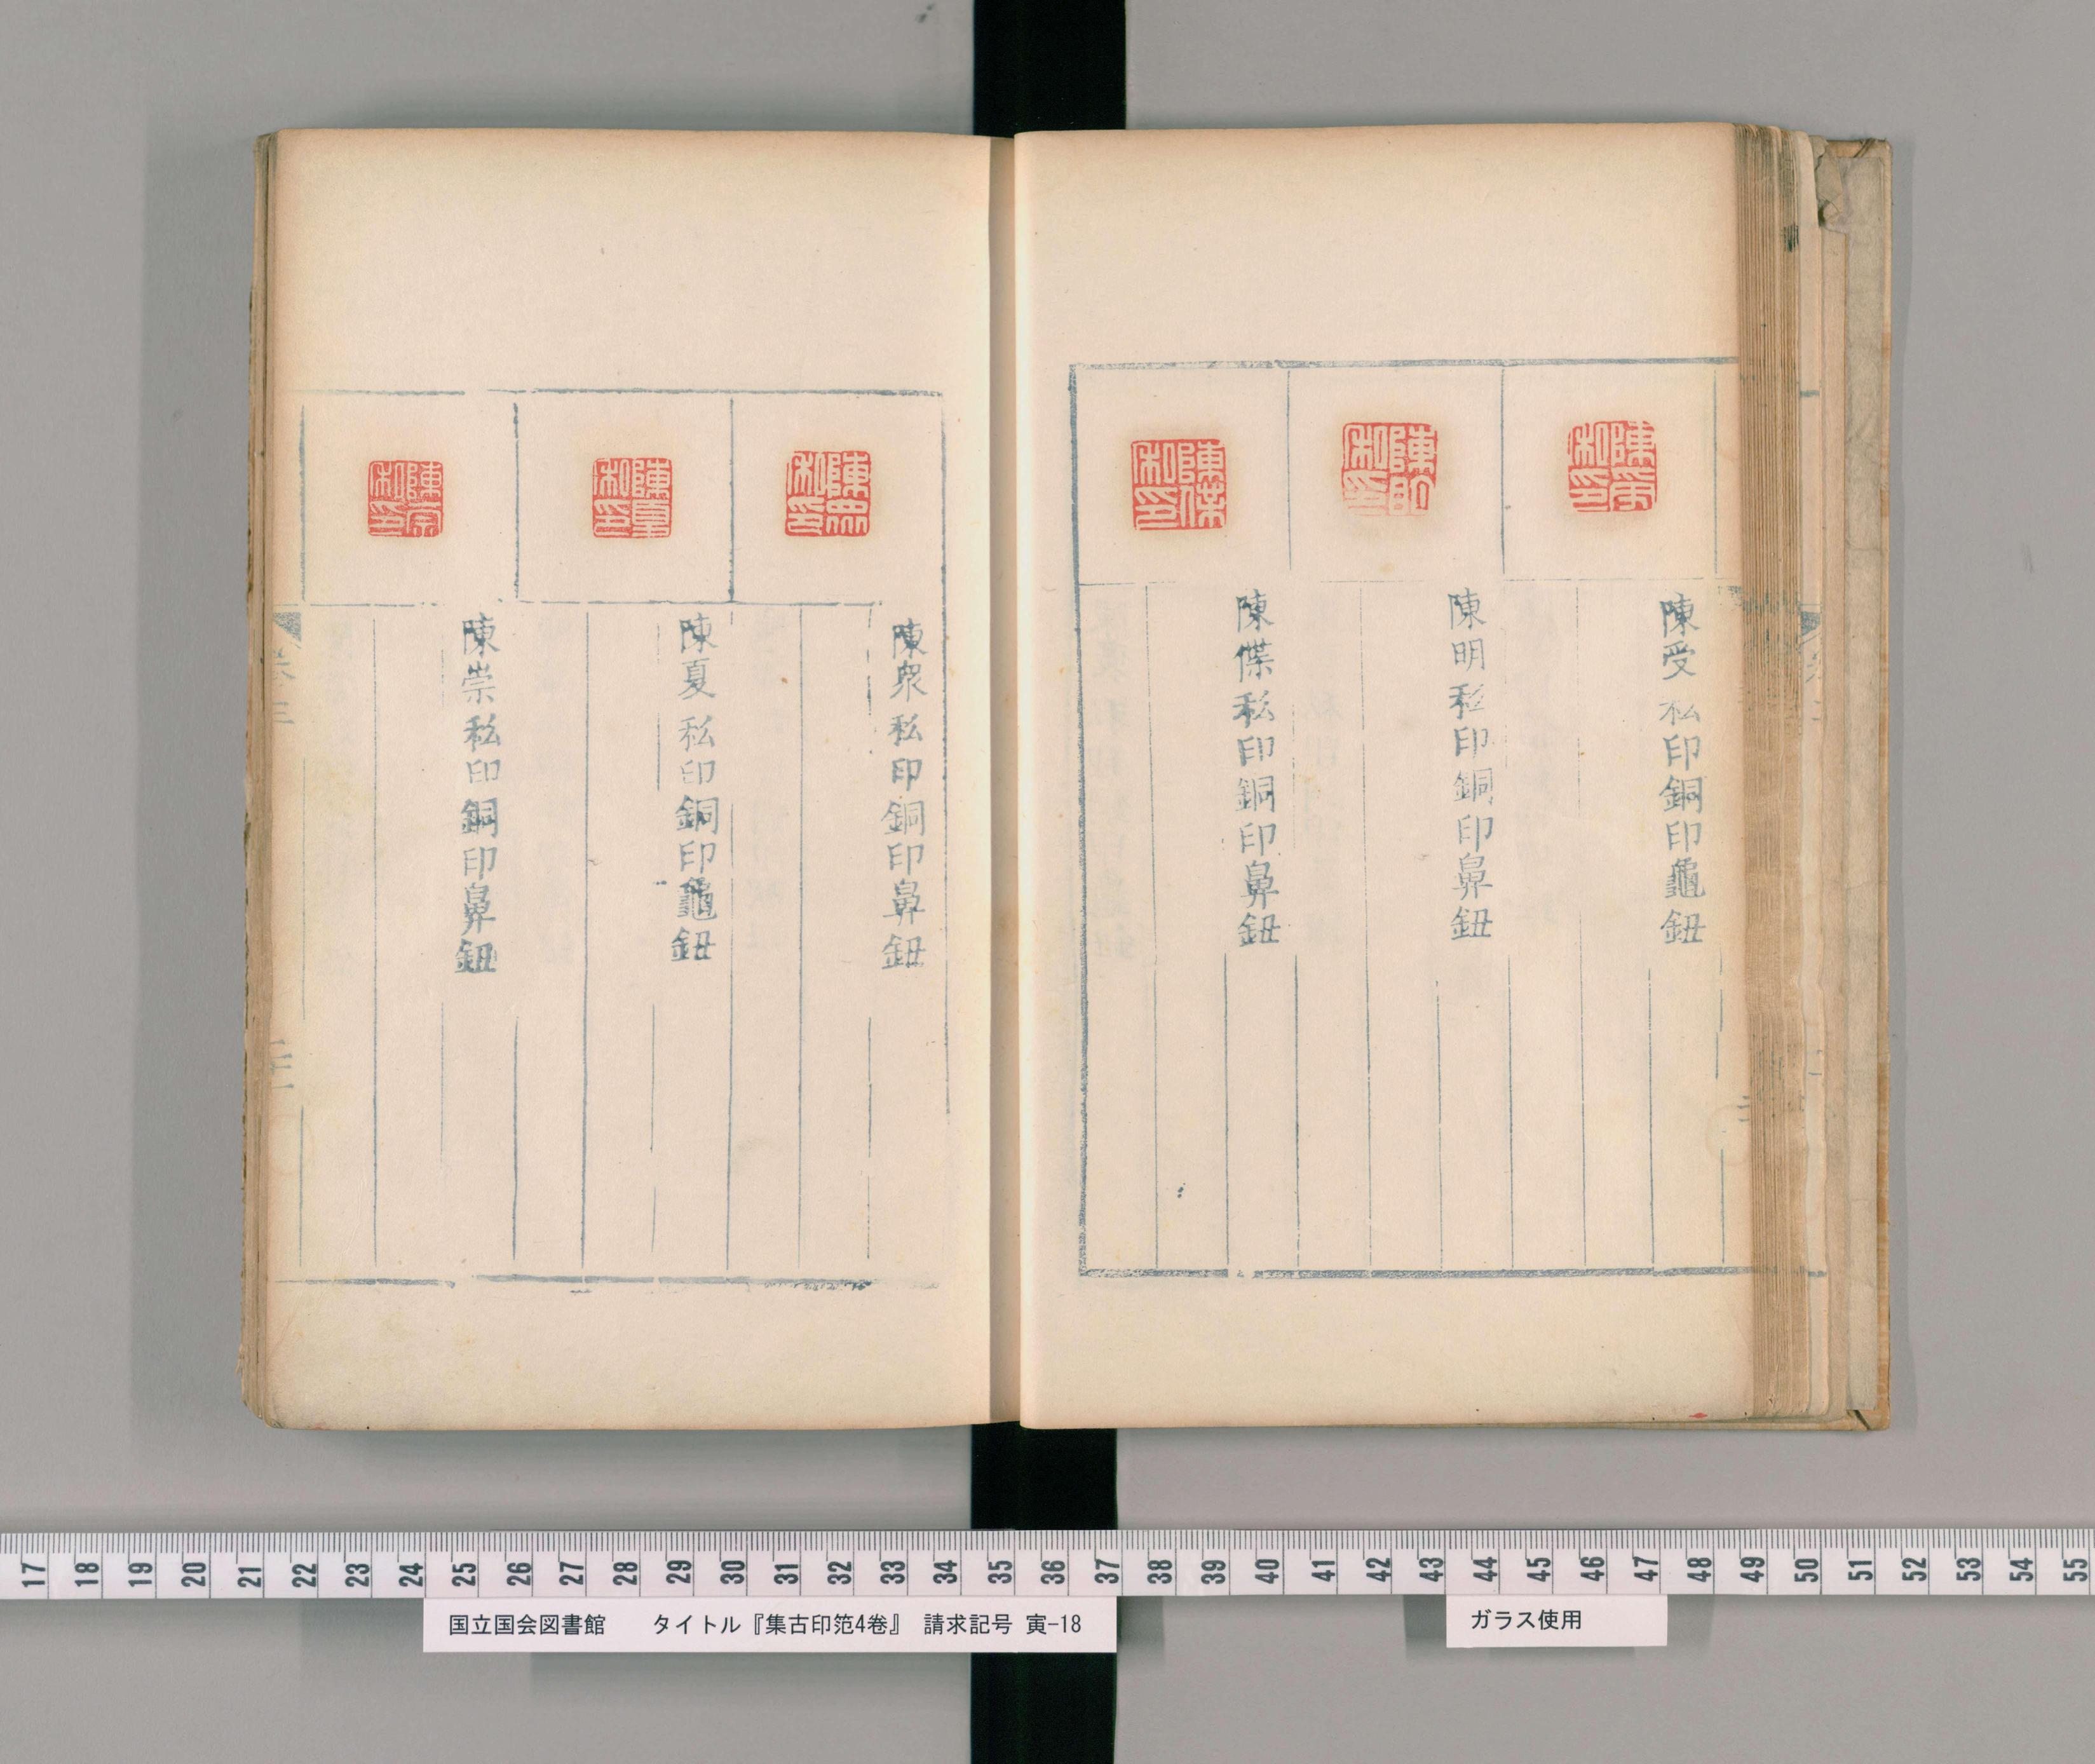 陳受私印銅印龜鈕
陳明私印銅印鼻鈕
陳僷私印銅印鼻鈕
陳衆私印銅印鼻鈕
陳夏私印銅印龜鈕
陳崇私印銅印鼻鈕
17 18 19 20 21 22 23 24 25 26 27 28 29 30 31 32 33 34 35 36 37 38 39 40 41 42 43 44 45 46 47 48 49 50 51 52 53 54 55
国立国会図書館 タイトル『集古印笵4巻』 請求記号 寅-18
ガラス使用